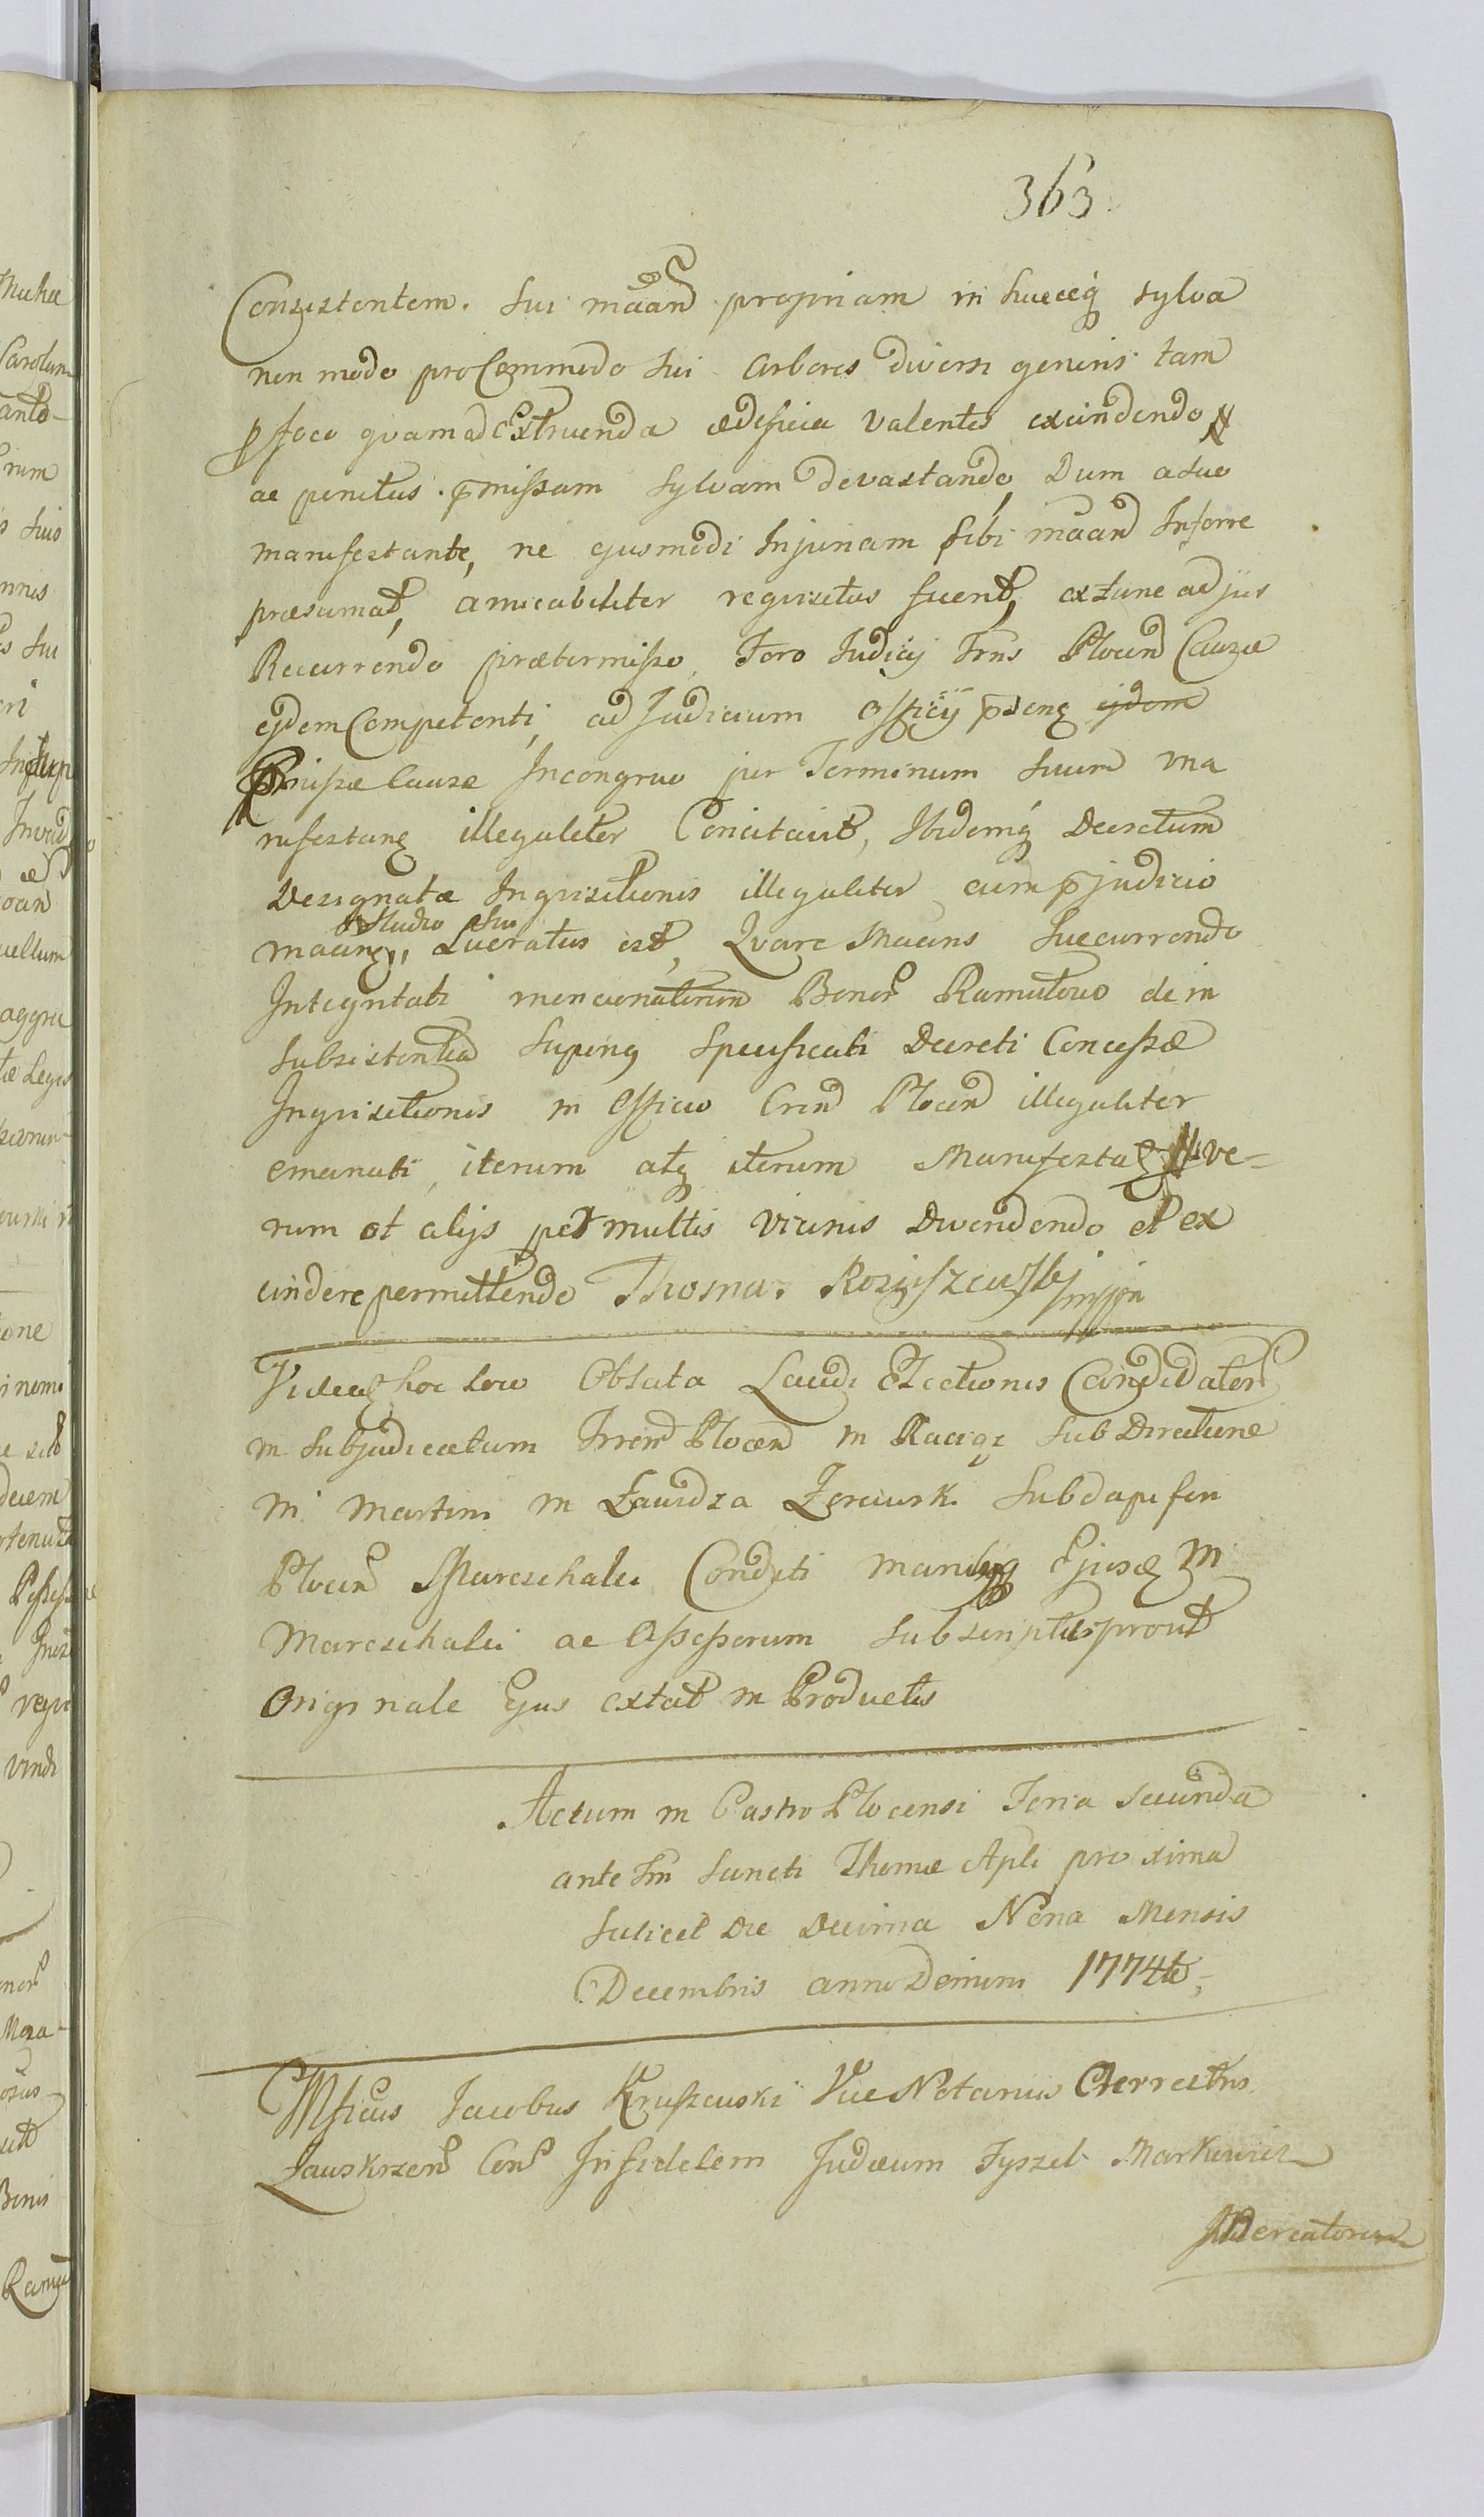 363.
Consistentem. Sui mãan propriam in hucceq sylva
non modo pro Commodo sui arbores diversi generis tam
p foco quam ad Extruenda ædificia valentes excindendo #
ac penitus p̄missam Sylvam devastando, Dum a suo
manifestante, ne ejusmodi Injuriam sibi mãan Inferre
præsumat, amicabiliter requisitus fuerit, ex tunc ad jus
Recurrendo prætermisso, Foro Judicij Trns Plocen Causæ
ejdem Competenti, ad Judicium Officij p̄senς ejdem
P̄missæ Causæ Incongruo per Terminum suum ma
nifestanς illegaliter Concitavit, Ibidemq Decretum
Designatæ Inquisitionis illegaliter cum p̄judicio
studio suo
maanς,, Lucratus est, Quare Maans Succurrendo
Integritati mencionatorum Bonor Ramutowo de in
subsistentia Supinq Specificati Decreti Concessæ
Inquisitionis in Officio Cren Plocen illegaliter
emanati, iterum atq iterum Manifestaς # ve=
rum et alijs per multis vicinis Divendendo et ex
cindere permittendo Thomas Rosciszewski mpa
Videaς hoc loco Oblata Laudi Electionis Candidator
in Subjudicatum Trren Plocen in Raciąż sub Directione
M Martini in Zawidza Zerawsk. Subdapiferi
Plocen Mareschalci Conditi manibq Ejusdς M
Mareschalci ac Assessorum subscriptus prout
Originale Ejus extat in Productis
Actum in Castro Plocensi Feria secunda
ante Fm Sancti Thomæ Apli proxima
scilicet Die Decima Nona Mensis
Decembris anno Domini 1774to,
Mficus Jacobus Kruszewski Vice Notarius Terrestris
Zawskrzen Con Infidelem Judæum Fyszel Markowicz
Mercatorem